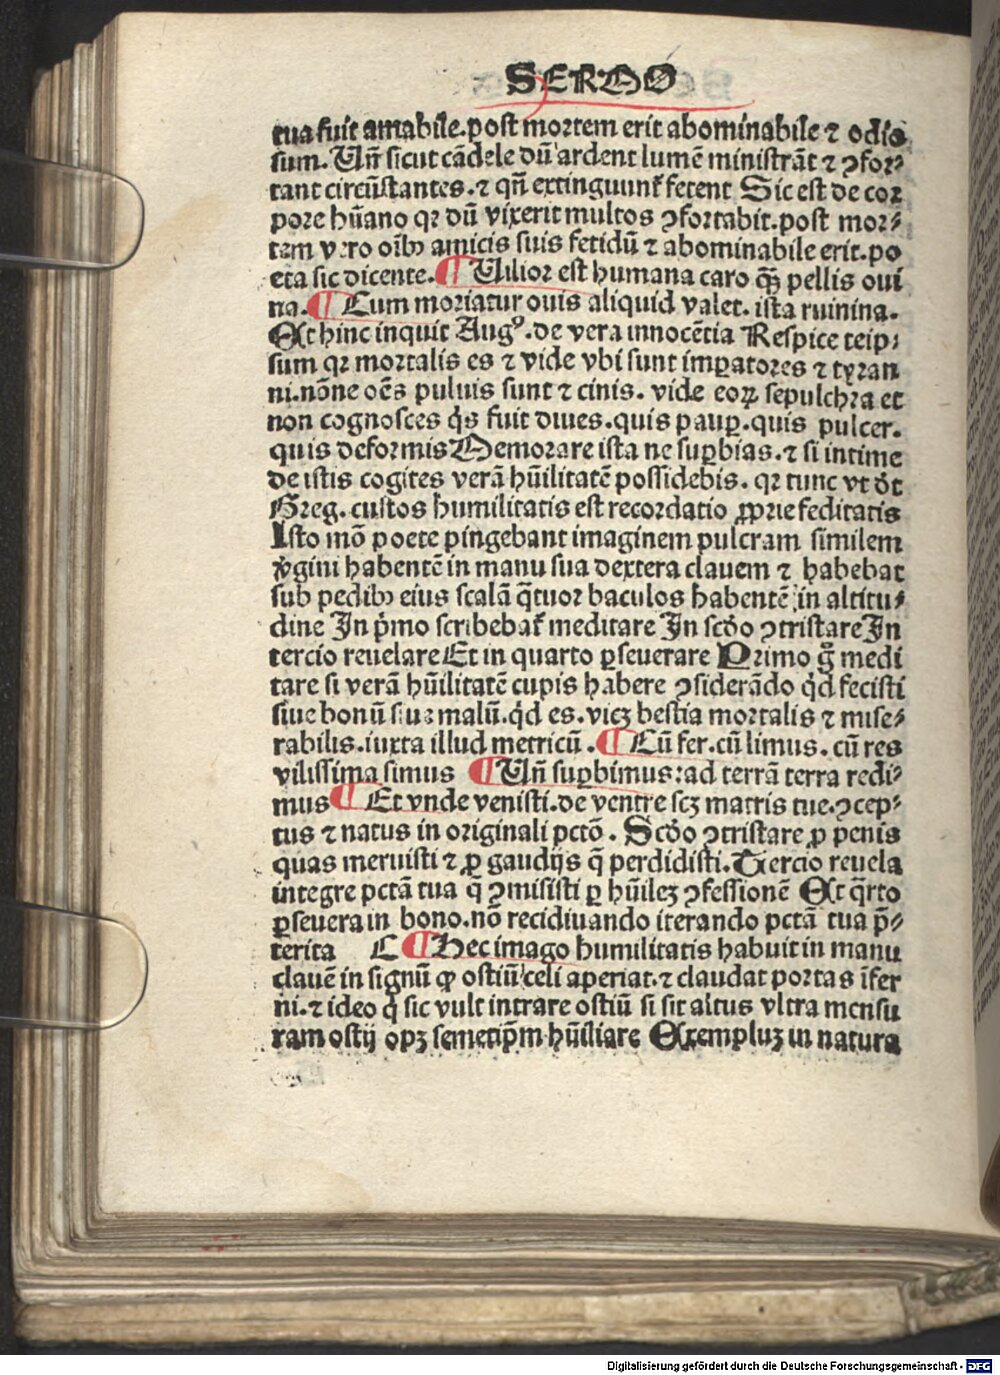 SERMO
tua fuit amabile.post mortem erit abominabile ⁊ odio
sum. Vñ sicut cãdele dũ ardent lumẽ ministrãt ⁊ ꝯfor⸗
tant circũstantes.⁊ qñ extinguunt᷑ fetent Sic est de cor
pore hũano qꝛ dũ vixerit multos ꝯfortabit.post mor⸗
tem vero oĩbꝫ amicis suis fetidũ ⁊ abominabile erit.po
eta sic dicente. ¶ Vilior est humana caro qꝫ̃ pellis oui
na. ¶ Cum moriatur ouis aliquid valet. ista ruinina.
Et hinc inquit Augꝰ. de vera innocẽtia Respice teip⸗
sum qꝛ mortalis es ⁊ vide vbi sunt imꝑatores ⁊ tyran
ni.nõne oẽs puluis sunt ⁊ cinis. vide eoꝝ sepulchra et
non cognosces q̇s fuit diues.quis pauꝑ.quis pulcer.
quis deformis Memorare ista ne suꝑbias.⁊ si intime
de istis cogites verã hũilitatẽ possidebis. qꝛ tunc vt dt̃
Greg. custos humilitatis est recordatio ꝓprie feditatis
Isto mõ poete pingebant imaginem pulcram similem
v̾gini habentẽ in manu sua dextera clauem ⁊ habebat
sub pedibꝫ eius scalã q̃tuor baculos habentẽ in altitu⸗
dine In p̾mo scribebat᷑ meditare In scďo ꝯtristare In
tercio reuelare Et in quarto ꝑseuerare Primo g̊ medi
tare si verã hũilitatẽ cupis habere ꝯsiderãdo qď fecisti
siue bonũ siue malũ.qď es.vicꝫ bestia mortalis ⁊ mise⸗
rabilis.iuxta illud metricũ. ¶ Cũ fer.cũ limus.cũ res
vilissima simus ¶ Vñ suꝑbimus:ad terrã terra redi⸗
mus ¶ Et vnde venisti.de ventre scꝫ matris tue.ꝯcep⸗
tus ⁊ natus in originali pctõ. Scďo ꝯtristare ꝓ penis
quas meruisti ⁊ ꝓ gaudijs q̃ perdidisti. Tercio reuela
integre pctã tua q̃ ꝯmisisti ꝑ hũileꝫ ꝯfessionẽ Et q̃rto
ꝑseuera in bono.nõ recidiuando iterando pctã tua p̃⸗
terita C ¶ Hec imago humilitatis habuit in manu
clauẽ in signũ ꝙ ostiũ celi aperiat.⁊ claudat portas ĩfer
ni.⁊ ideo q̇ sic vult intrare ostiũ si sit altus vltra mensu
ram ostij opꝫ semetip̃m hũiliare Exempluꝫ in natura
Digitalisierung gefördert durch die Deutsche Forschungsgemeinschaft - DFG